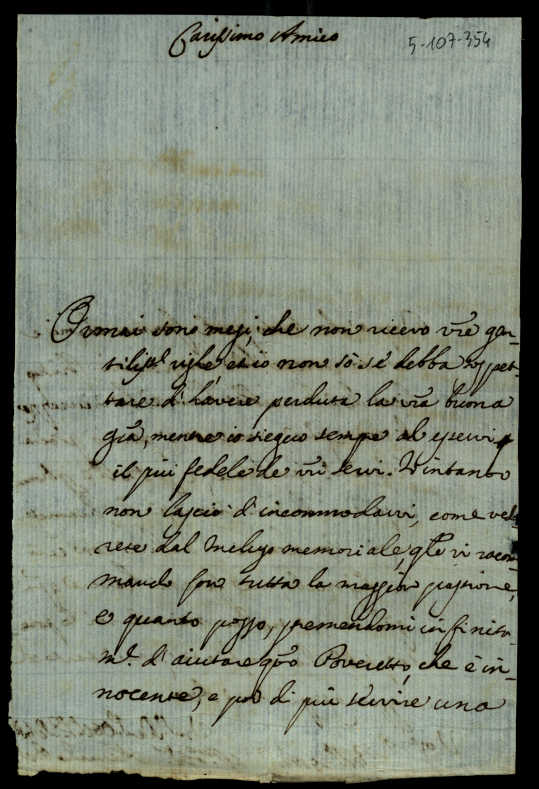 Carissimo Amico
5-107-354
Ormai sono mesi, che non ricevo vre gen-
tiliss.e righe et io non sò sè debba sospet-
tare d'havere perduta la vra buona
gra, mentre io sieguo sempre ad esservi
il più fedele de vri servi. N'intanto
non lascio d'incommodarvi, come ved-
rete dal incluso memoriale, qle vi racco-
mando con tutta la maggior passione,
e quanto posso, premendomi infinita-
m.e d'aiutare qto Poveretto, che è in-
nocente, e poi di più servire una